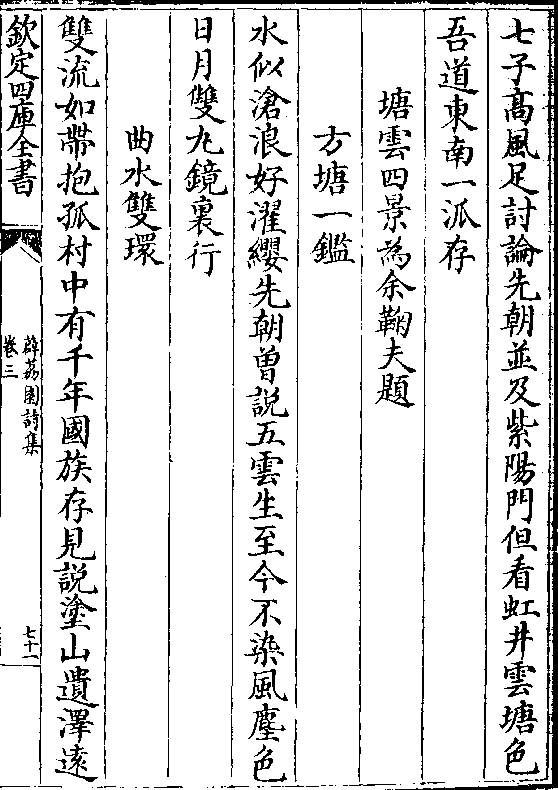 七子髙風足討論先朝並及紫陽門但看虹井雲塘色
吾道東南一派存
塘雲四景為余鞠夫題
方塘一鑑
水似滄浪好濯纓先朝曽説五雲生至今不染風塵色
日月雙丸鏡裏行
曲水雙環
雙流如帶抱孤村中有千年國族存見説塗山遺澤逺
欽定四庫全書
薜荔園詩集
卷三
七十一